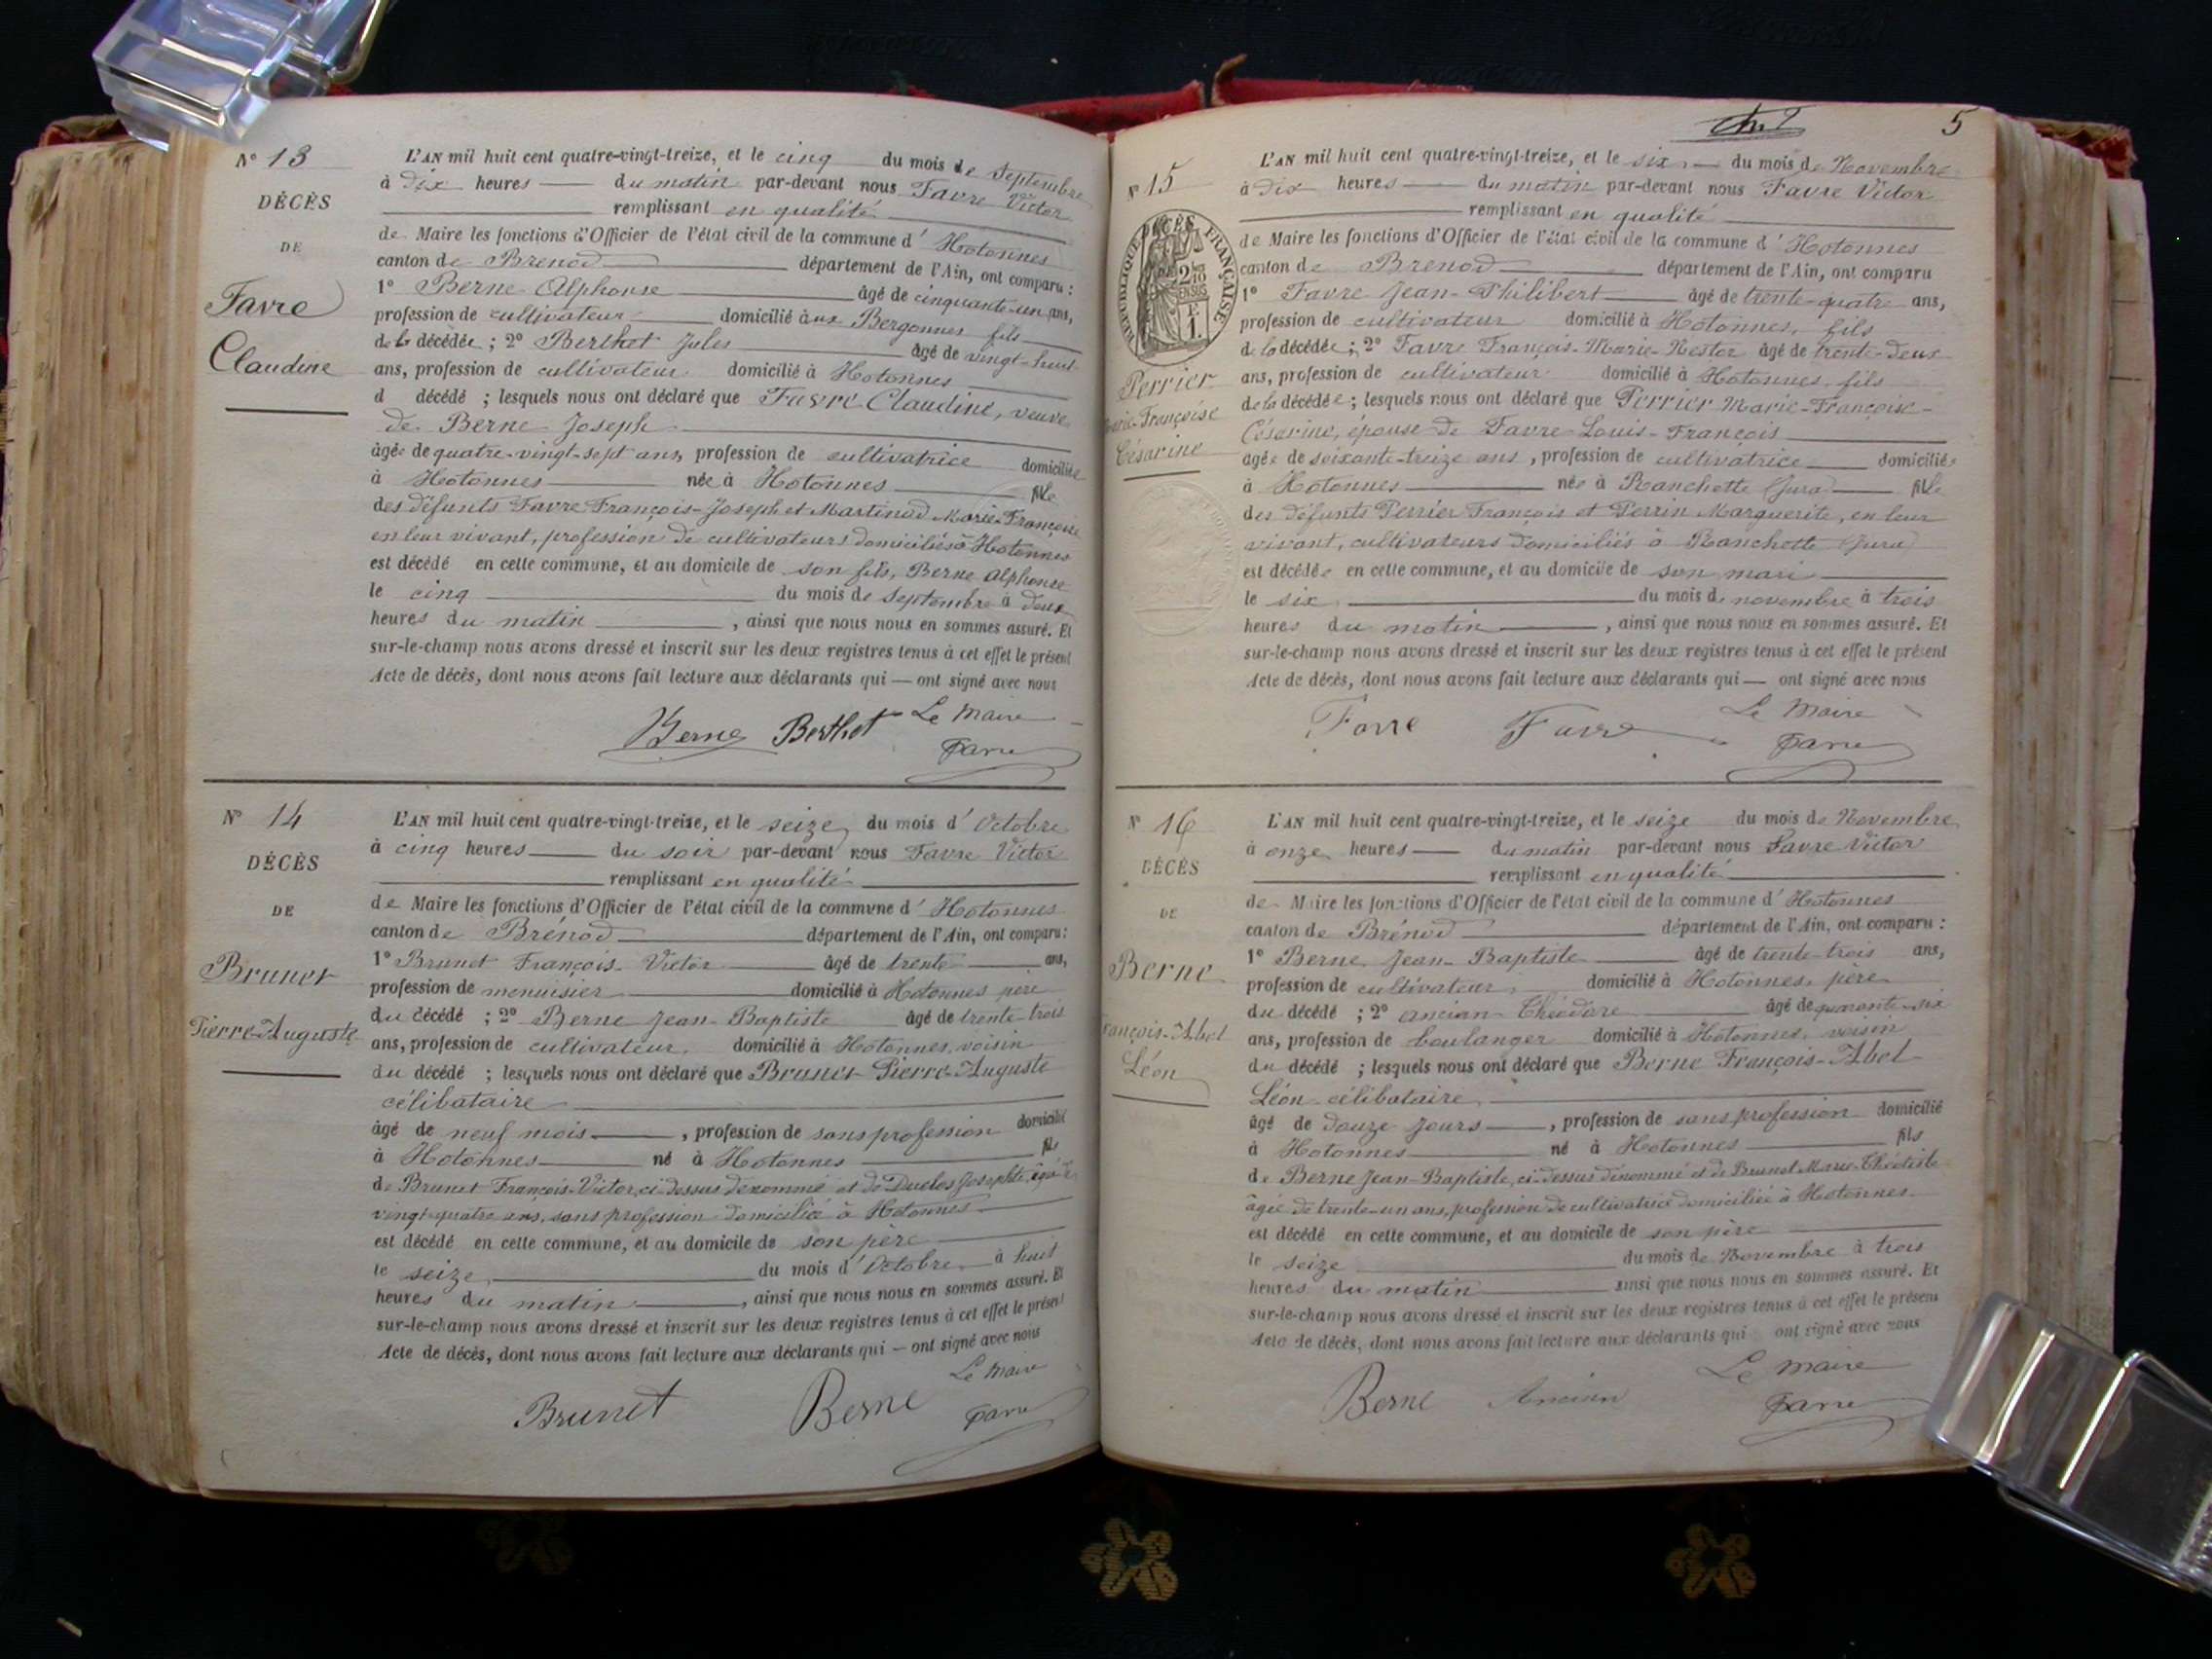 N° 13
DÉCÈS
DE
Favre
Claudine
L'AN mil huit cent quatre-vingt-treize, et le cinq du mois de Septembre
à dix heures du matin par-devant nous Favre Victor
remplissant en qualité
de Maire les fonctions d'Officier de l'état civil de la commune d'Hotonnes
canton de Brenod département de l'Ain, ont comparu :
1° Berne Alphonse âgé de cinquante-un ans,
profession de cultivateur domicilié aux Bergonnes fils
de la décédée ; 2° Berthet Jules âgé de vingt-huit
ans, profession de cultivateur domicilié à Hotonnes
d décédé ; lesquels nous ont déclaré que Favre Claudine, veuve
de Berne Joseph
âgée de quatre-vingt-sept ans, profession de cultivatrice domiciliée
à Hotonnes née à Hotonnes fille
des défunts Favre François-Joseph et Martinod Marie-Françoise
en leur vivant, profession de cultivateurs domiciliés à Hotonnes
est décédé en cette commune, et au domicile de son fils, Berne Alphonse
le cinq du mois de Septembre à deux
heures du matin, ainsi que nous nous en sommes assuré. Et
sur-le-champ nous avons dressé et inscrit sur les deux registres tenus à cet effet le présent
Acte de décès, dont nous avons fait lecture aux déclarants qui — ont signé avec nous
Berne Berthet Le Maire
Favre
N° 14
DÉCÈS
DE
Brunet
Pierre-Auguste
L'AN mil huit cent quatre-vingt-treize, et le seize du mois d'Octobre
à cinq heures du soir par-devant nous Favre Victor
remplissant en qualité
de Maire les fonctions d'Officier de l'état civil de la commune d'Hotonnes
canton de Brénod département de l'Ain, ont comparu :
1° Brunet François-Victor âgé de trente ans,
profession de menuisier domicilié à Hotonnes père
du décédé ; 2° Berne Jean-Baptiste âgé de trente-trois
ans, profession de cultivateur, domicilié à Hotonnes, voisin
du décédé ; lesquels nous ont déclaré que Brunet Pierre-Auguste
célibataire
âgé de neuf mois, profession de sans profession domicilié
à Hotonnes né à Hotonnes fils
de Brunet François-Victor, ci-dessus dénommé et de Duclos Josephte, âgée de
vingt-quatre ans, sans profession domiciliée à Hotonnes
est décédé en cette commune, et au domicile de son père
le seize du mois d'Octobre à huit
heures du matin, ainsi que nous nous en sommes assuré. Et
sur-le-champ nous avons dressé et inscrit sur les deux registres tenus à cet effet le présent
Acte de décès, dont nous avons fait lecture aux déclarants qui — ont signé avec nous
Brunet Berne Le Maire
Favre
5
N° 15
RÉPUBLIQUE FRANÇAISE
DÉCÈS
Perrier
Marie-Françoise
Césarine
L'AN mil huit cent quatre-vingt-treize, et le six du mois de Novembre
à dix heures du matin par-devant nous Favre Victor
remplissant en qualité
de Maire les fonctions d'Officier de l'état civil de la commune d'Hotonnes
canton de Brenod département de l'Ain, ont comparu
1° Favre Jean-Philibert âgé de trente-quatre ans,
profession de cultivateur domicilié à Hotonnes, fils
de la décédée ; 2° Favre François-Marie-Nestor âgé de trente-deux
ans, profession de cultivateur domicilié à Hotonnes, fils
de la décédée ; lesquels nous ont déclaré que Perrier Marie-Françoise-
Césarine, épouse de Favre Louis-François
âgée de soixante-treize ans, profession de cultivatrice domiciliée
à Hotonnes née à Ranchette (Jura) fille
des défunts Perrier François et Perrin Marguerite, en leur
vivant, cultivateurs domiciliés à Ranchette (Jura)
est décédée en cette commune, et au domicile de son mari
le six du mois de novembre à trois
heures du matin, ainsi que nous nous en sommes assuré. Et
sur-le-champ nous avons dressé et inscrit sur les deux registres tenus à cet effet le présent
Acte de décès, dont nous avons fait lecture aux déclarants qui — ont signé avec nous
Favre Favre Le Maire
Favre
N° 16
DÉCÈS
DE
Berne
François-Abel
Léon
L'AN mil huit cent quatre-vingt-treize, et le seize du mois de Novembre
à onze heures du matin par-devant nous Favre Victor
remplissant en qualité
de Maire les fonctions d'Officier de l'état civil de la commune d'Hotonnes
canton de Brénod département de l'Ain, ont comparu :
1° Berne Jean-Baptiste âgé de trente-trois ans,
profession de cultivateur, domicilié à Hotonnes, père
du décédé ; 2° Ancian Théodore âgé de quarante-six
ans, profession de boulanger domicilié à Hotonnes, voisin
du décédé ; lesquels nous ont déclaré que Berne François-Abel
Léon célibataire
âgé de douze jours, profession de sans profession domicilié
à Hotonnes né à Hotonnes fils
de Berne Jean-Baptiste, ci-dessus dénommé et de Brunet Marie-Théotiste
âgée de trente-un ans, profession de cultivatrice domiciliée à Hotonnes
est décédé en cette commune, et au domicile de son père
le seize du mois de Novembre à trois
heures du matin ainsi que nous nous en sommes assuré. Et
sur-le-champ nous avons dressé et inscrit sur les deux registres tenus à cet effet le présent
Acte de décès, dont nous avons fait lecture aux déclarants qui ont signé avec nous
Berne Ancian Le Maire
Favre